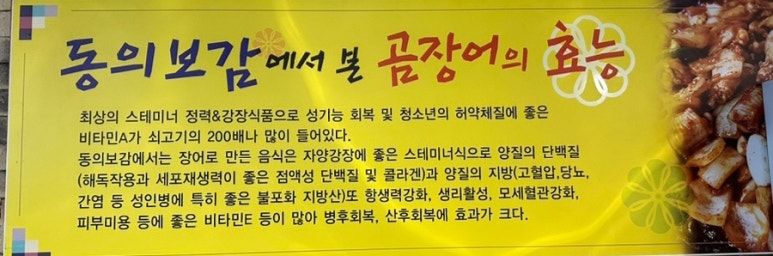 동의보감에서 본 곰장어의 효능
최상의 스테미너 정력&강장식품으로 성기능 회복 및 청소년의 허약체질에 좋은
비타민A가 쇠고기의 200배나 많이 들어있다.
동의보감에서는 장어로 만든 음식은 자양강장에 좋은 스테미너식으로 양질의 단백질
(해독작용과 세포재생력이 좋은 점액성 단백질 및 콜라겐)과 양질의 지방(고혈압,당뇨,
간염 등 성인병에 특히 좋은 불포화 지방산)또 항생력강화, 생리활성, 모세혈관강화,
피부미용 등에 좋은 비타민E 등이 많아 병후회복, 산후회복에 효과가 크다.